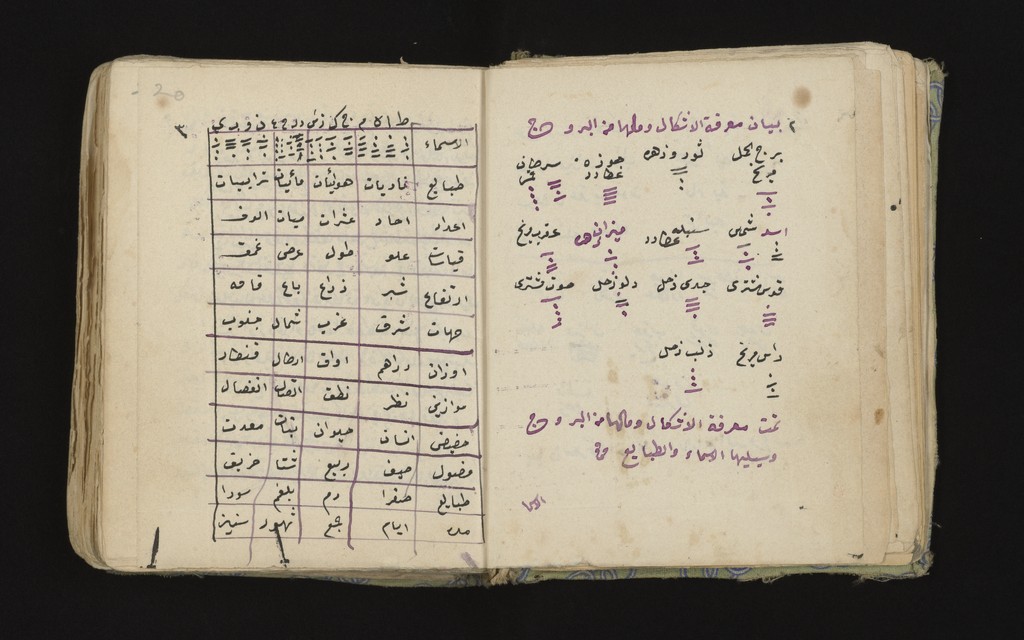 ٢ بيان معرفة الاشكال ومالها من البروج
برج الحمل ثور وزهره جوزه سرطان
مريخ عطارد قمر
اسد شمس سنبله عطارد ميزان زهره عقرب مريخ
قوس مشترى جدى زحل دلو زحل حوت مشترى
راس مريخ ذنب زحل
تمت معرفة الاشكال ومالها من البروج
ويليها الاسماء والطبايع
الاسما
20
٣
الاسماء
طبايع ناريات هوئيات مأيئات ترابيات
اعداد احاد عشرات ميات الوف
قياسات علو طول عرض غمق
ارتفاع شبر ذراع باع قامه
جهات شرق غرب شمال جنوب
اوزان دراهم اواق ارطال قنطار
موازين نظر نطق اتصال انفصال
انسان حيوان نبات معدن
فصول صيف ربيع شتا خريف
طبايع صفرا دم بلغم سودا
مده ايام جمع شهور سنين